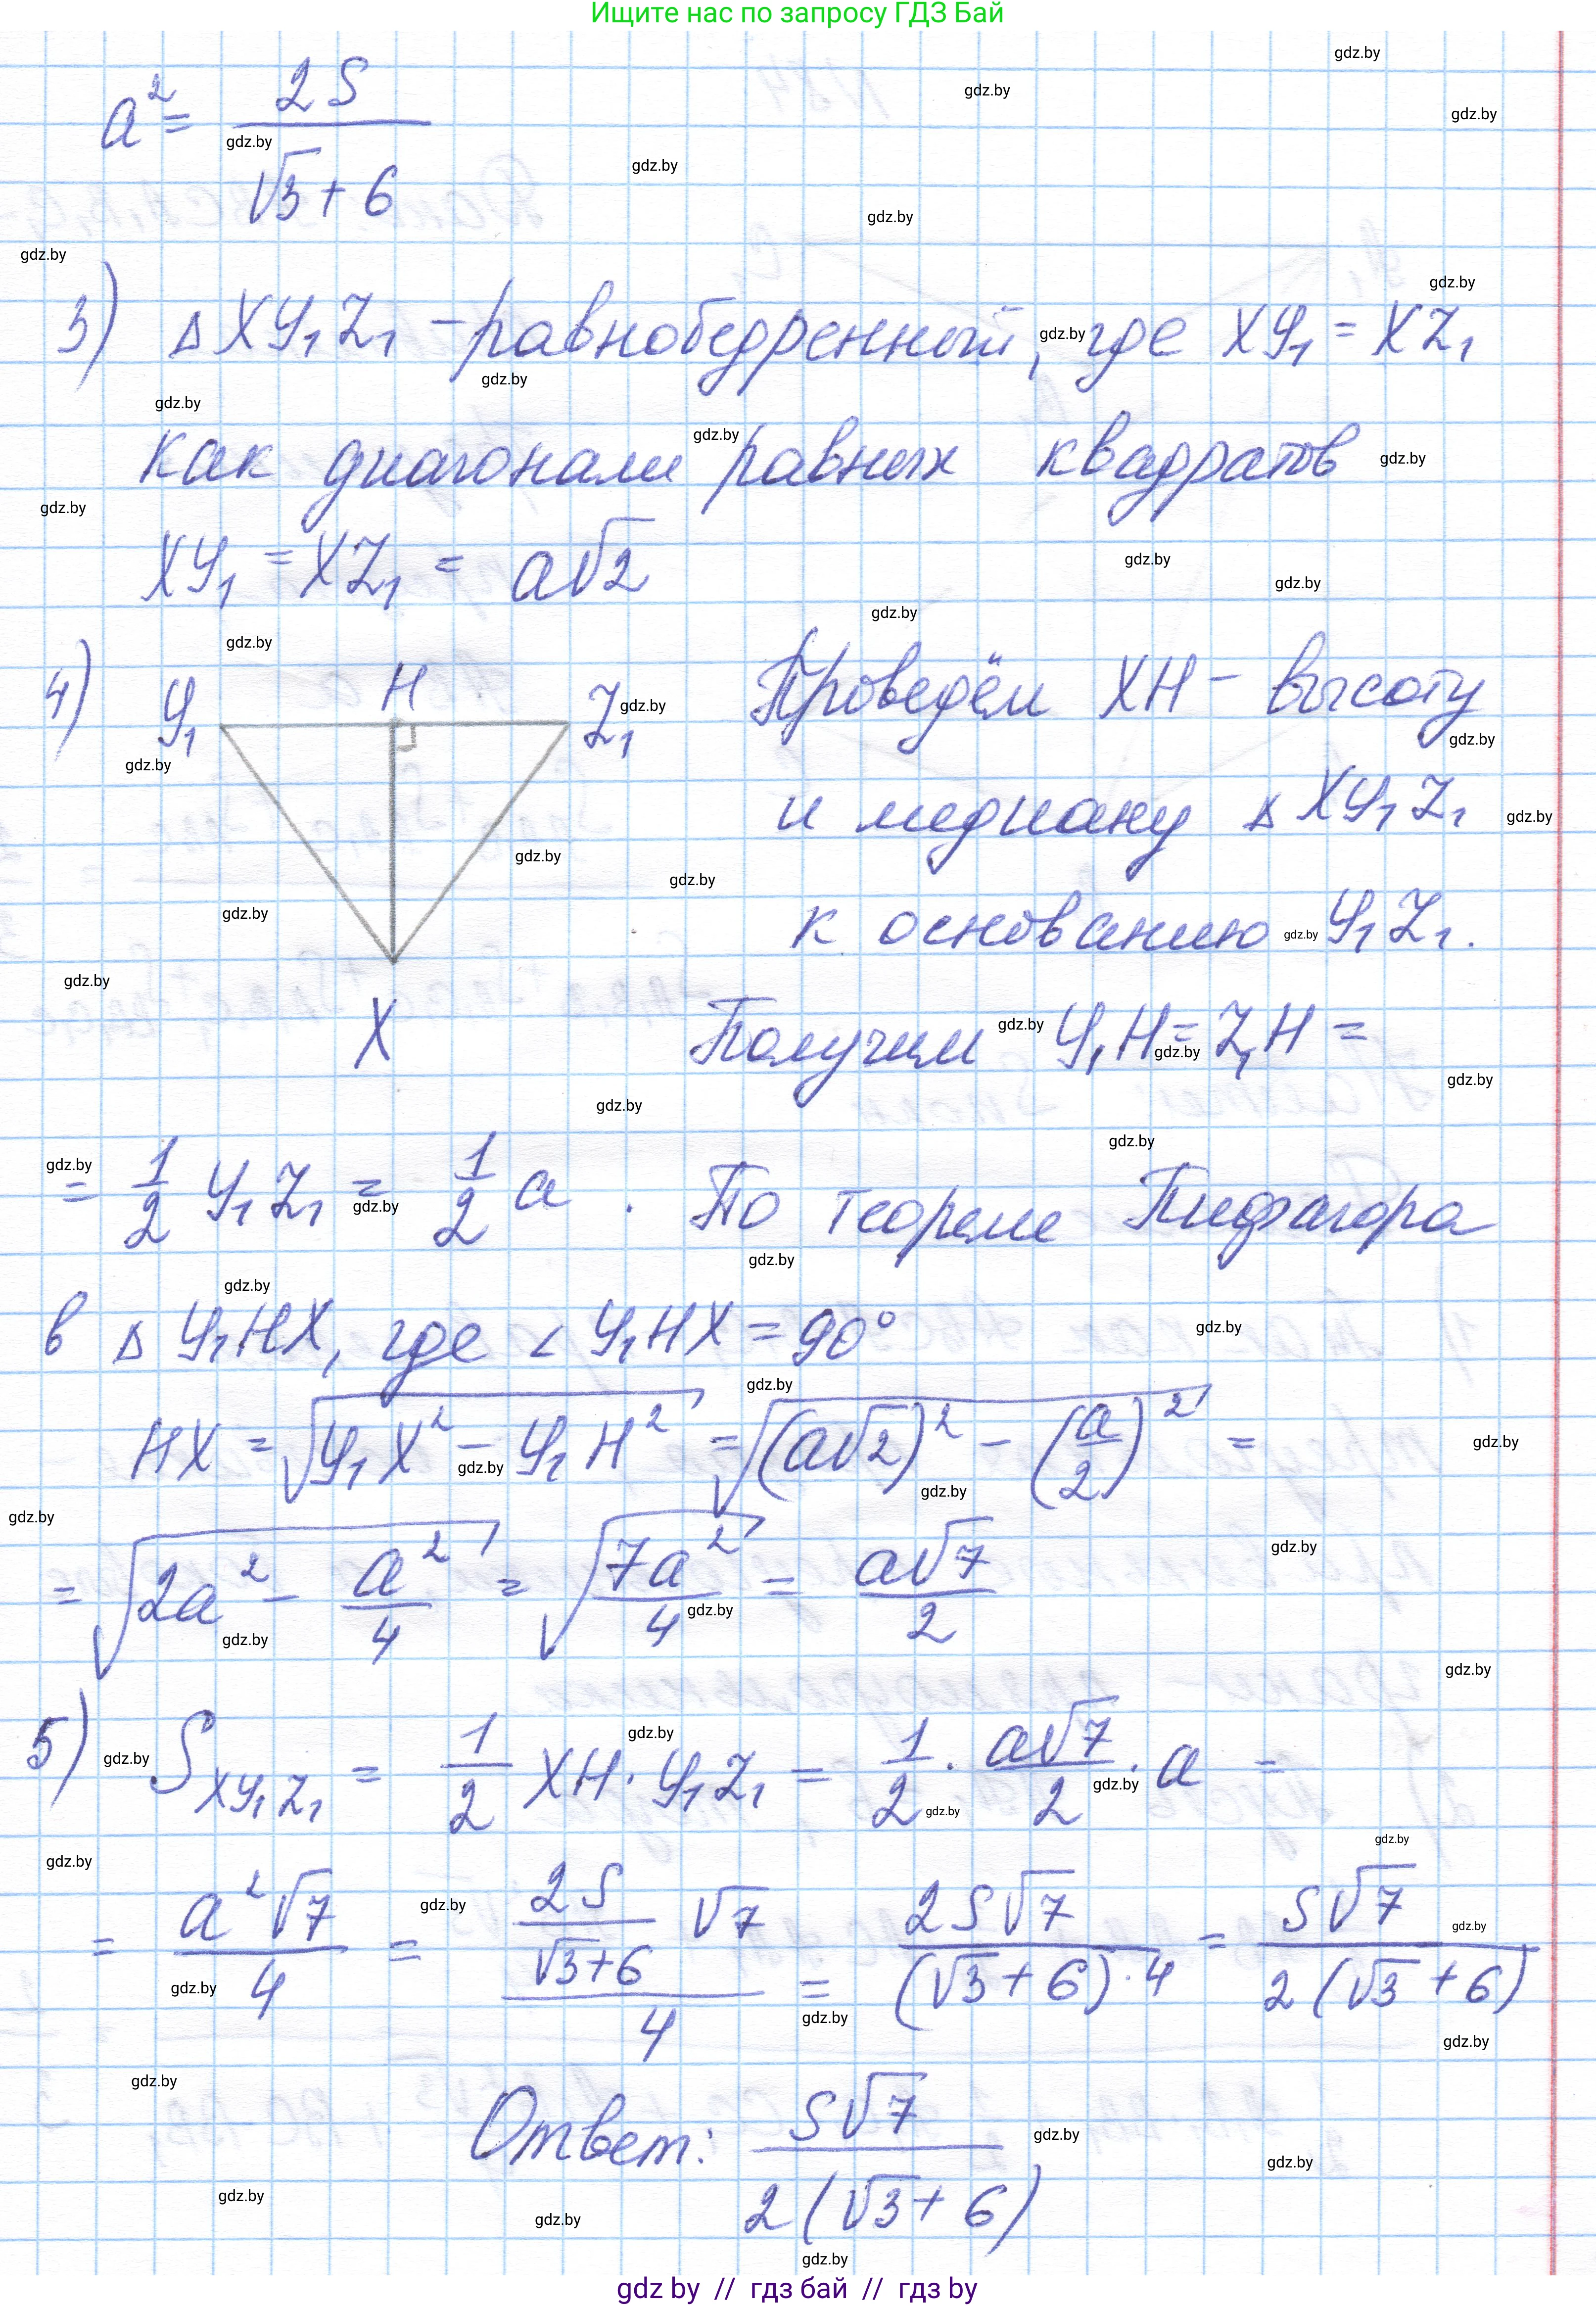 Ищите нас по запросу ГДЗ Бай
a² = 2S / (√3 + 6)
3) Δ XY₁Z₁ – равнобедренный, где XY₁ = XZ₁
как диагонали равных квадратов
XY₁ = XZ₁ = a√2
4) Y₁ H Z₁ X
Проведём XH – высоту
и медиану Δ XY₁Z₁
к основанию Y₁Z₁.
Получим Y₁H = Z₁H =
= 1/2 Y₁Z₁ = 1/2 a . По теореме Пифагора
в Δ Y₁HX, где ∠ Y₁HX = 90°
HX = √(Y₁X² – Y₁H²) = √((a√2)² – (a/2)²) =
= √(2a² – a²/4) = √(7a²/4) = a√7/2
5) S XY₁Z₁ = 1/2 XH · Y₁Z₁ = 1/2 · a√7/2 · a =
= a²√7/4 = (2S/(√3+6) √7)/4 = 2S√7/((√3+6)·4) = S√7/(2(√3+6))
Ответ: S√7/(2(√3+6))
gdz.by
gdz by // гдз бай // гдз by